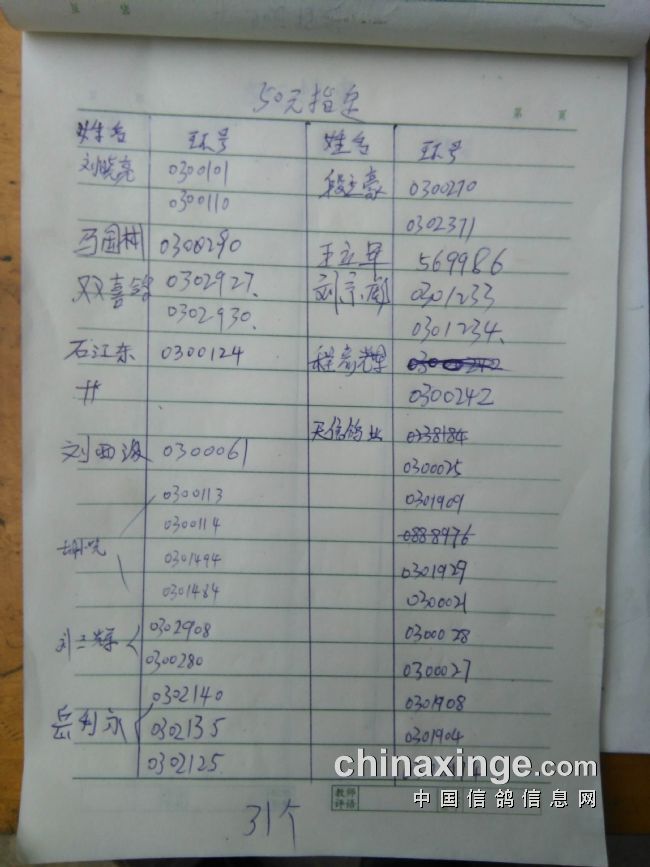 50元指定
第 页
姓名 环号 姓名 环号
刘晓亮 0300101 段立豪 0300270
0300110 0302371
马国林 0300290 王立军 569986
双喜鸽 0302927. 刘京 0301233
0302930. 0301234.
石江东 0300124 程高
0300242
天信鸽业 0238184
刘西海 0300061 0300025
0300113 0301909
0300114 0888976
胡 0301494 0301929
0301484 0300021
刘二辉 0302908 0300028
0300280 0300027
0302140 0301908
岳利永 0302135 0301904
0302125
chinaxinge.com
中国信鸽信息网
教师评语
31个